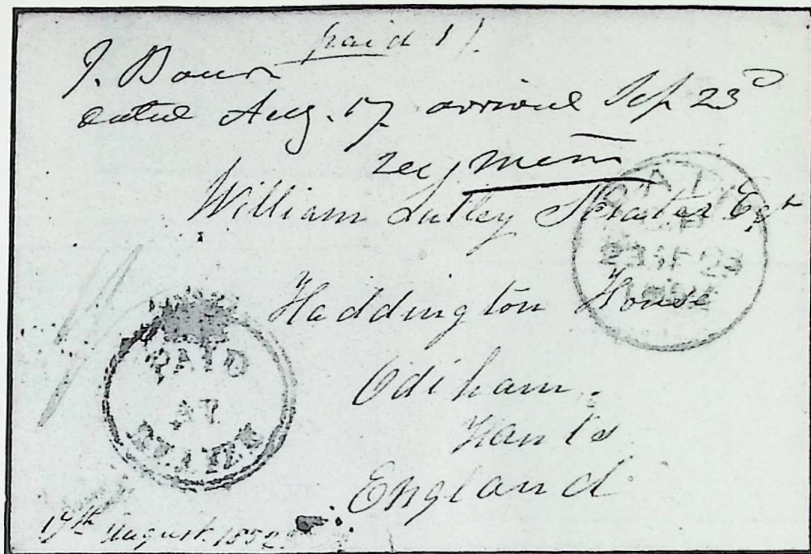 paid 1/.
J.
dated Aug. 17. arrived Sep 23d
William Lutley Esqr
Haddington House
Odiham.
Hants
England
PAID
AT
PAID
23 SP 23
1852
17th August 1852